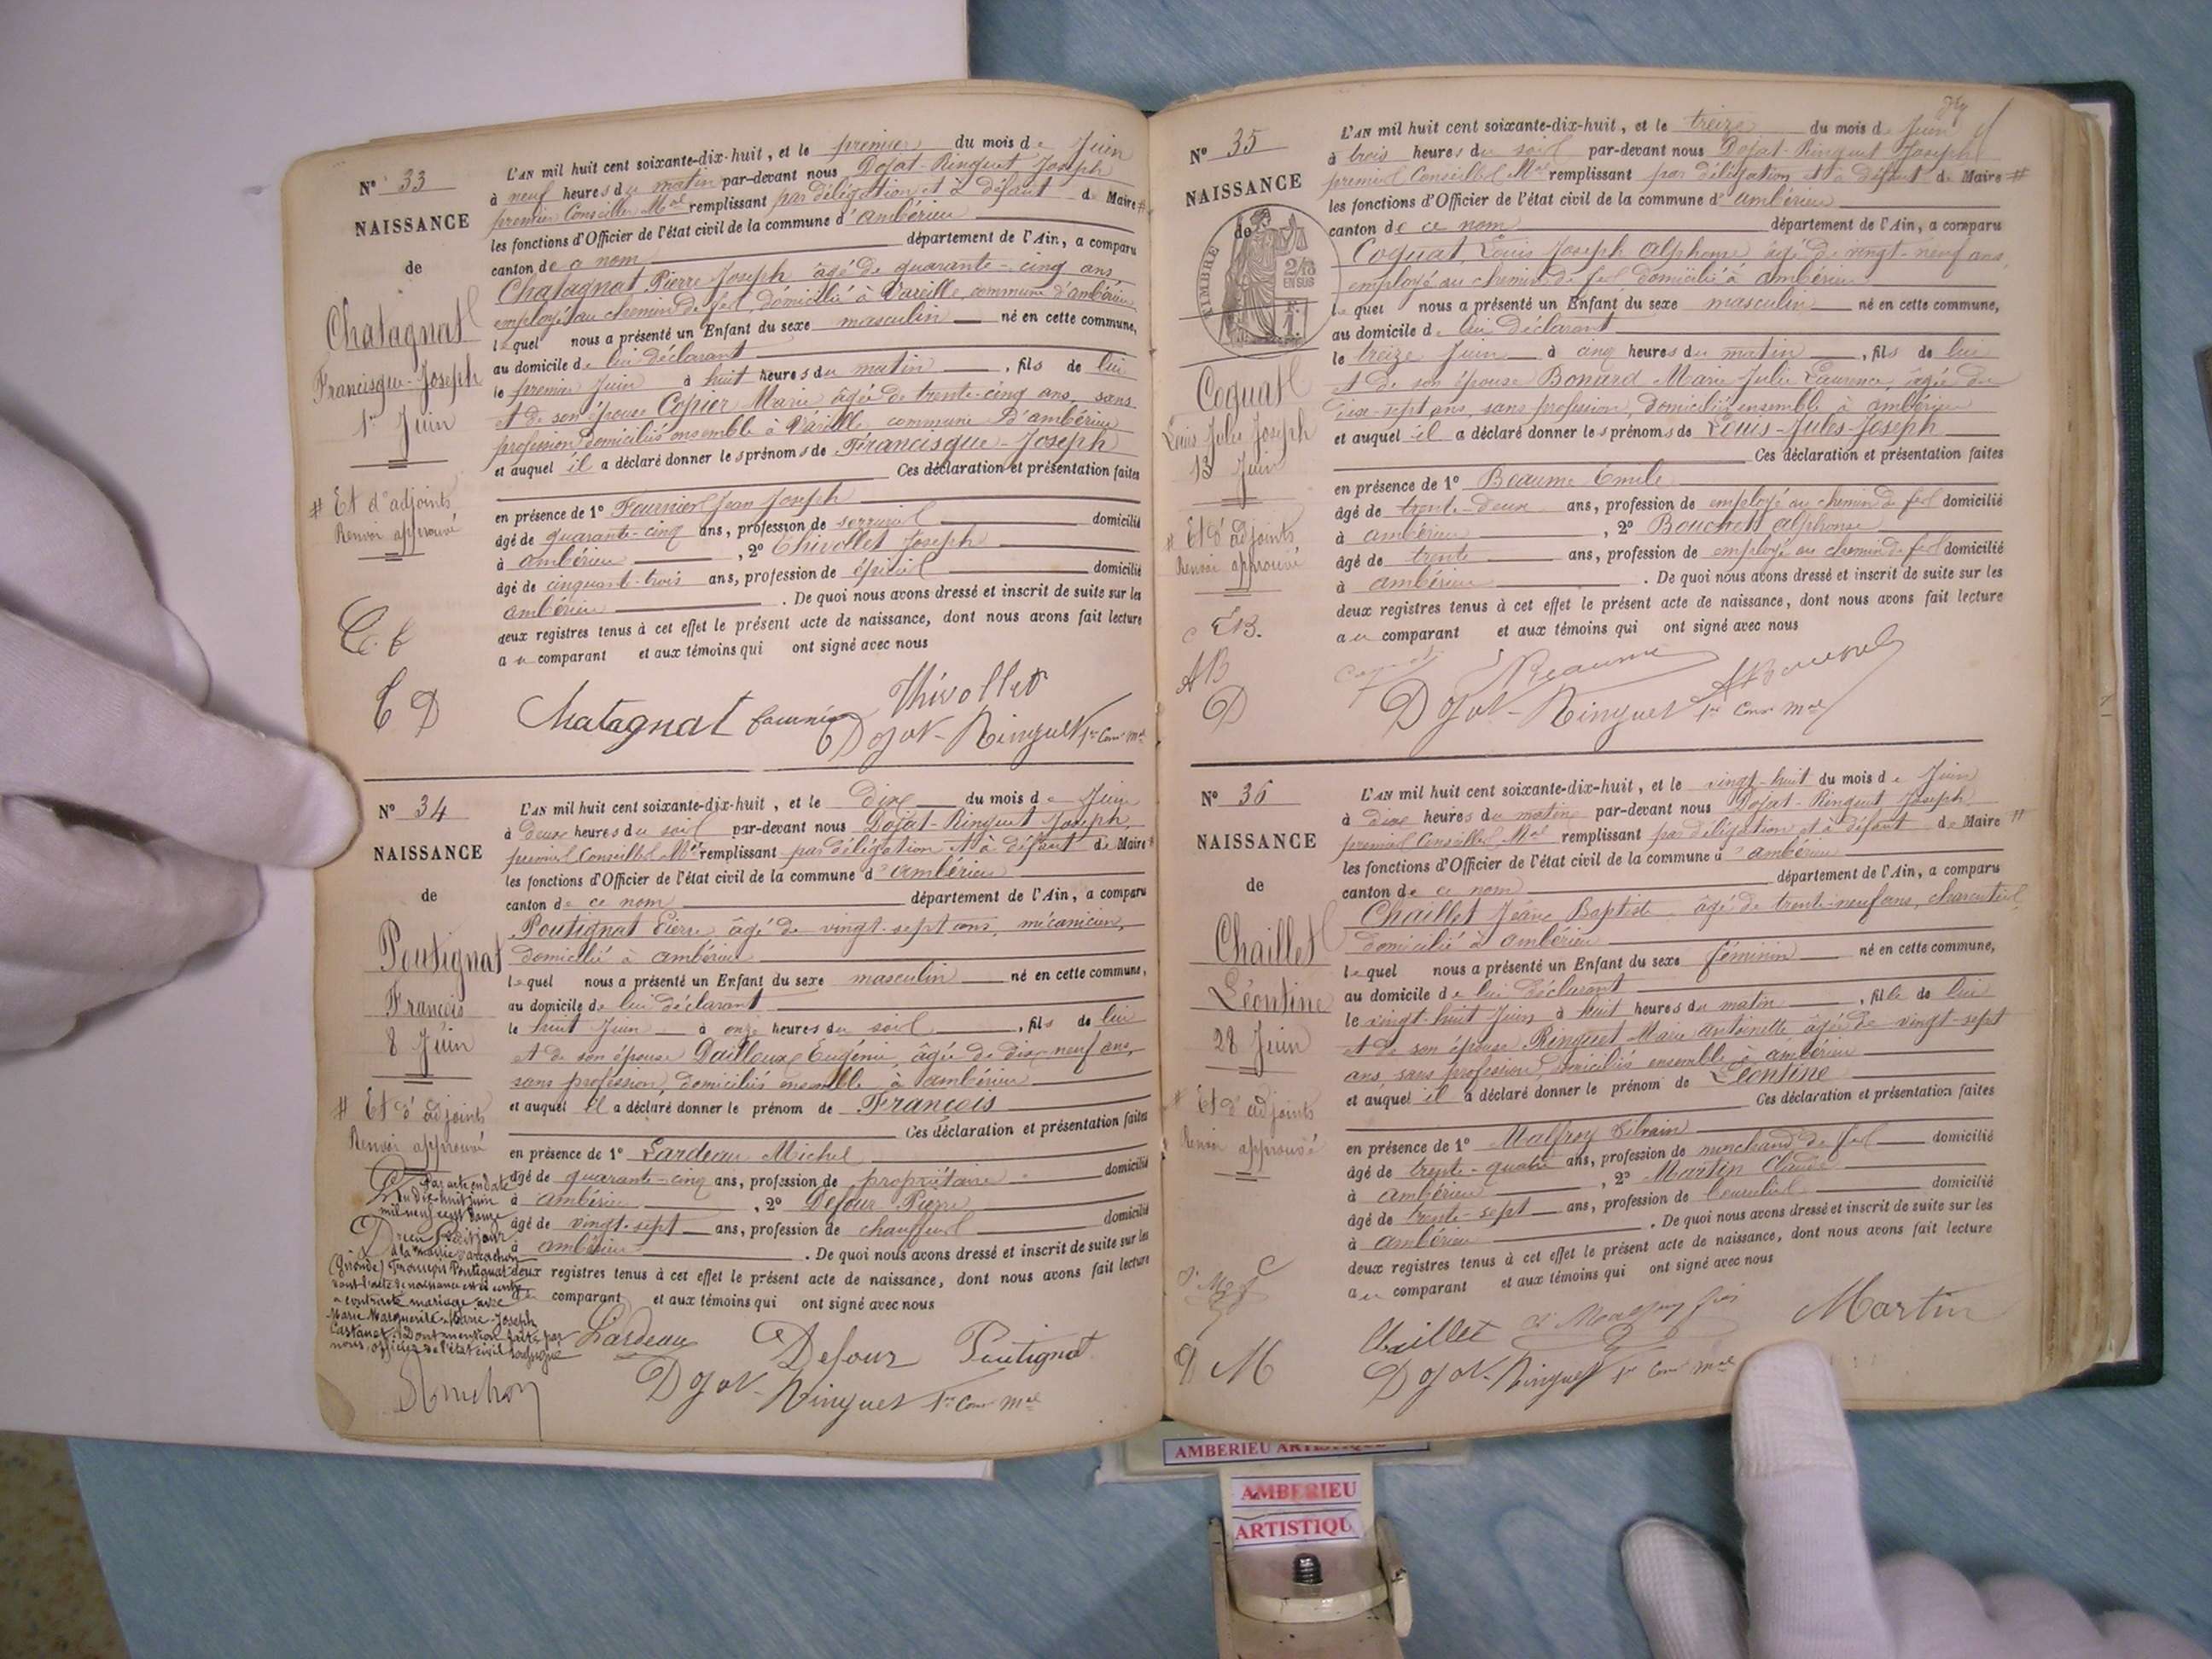 N° 33
NAISSANCE
de
Chatagnat
Francisque-Joseph
1er Juin
# Et d'adjoints
Renvoi approuvé
L'AN mil huit cent soixante-dix-huit, et le premier du mois de Juin
à neuf heures du matin par-devant nous Dojat-Ringuet Joseph
premier Conseiller Mal remplissant par délégation et à défaut de Maire #
les fonctions d'Officier de l'état civil de la commune d'ambérieu
canton de ce nom département de l'Ain, a comparu
Chatagnat Pierre Joseph âgé de quarante-cinq ans,
employé au chemin de fer, domicilié à Vareille, commune d'ambérieu
lequel nous a présenté un Enfant du sexe masculin né en cette commune,
au domicile de lui déclarant
le premier Juin à huit heures du matin, fils de lui
et de son épouse Copier Marie âgée de trente-cinq ans, sans
profession, domiciliés ensemble à Vareille, commune d'ambérieu
et auquel il a déclaré donner les prénoms de Francisque-Joseph
Ces déclaration et présentation faites
en présence de 1° Fournier Jean Joseph
âgé de quarante-cinq ans, profession de serrurier domicilié
à ambérieu, 2° Thivollet Joseph
âgé de cinquante-trois ans, profession de épicier domicilié
ambérieu. De quoi nous avons dressé et inscrit de suite sur les
deux registres tenus à cet effet le présent acte de naissance, dont nous avons fait lecture
au comparant et aux témoins qui ont signé avec nous
Chatagnat Fournier Thivollet
Dojat-Ringuet 1er Conr Mal
N° 34
NAISSANCE
de
Poutignat
François
8 Juin
# Et d'adjoints
Renvoi approuvé
Par acte en date
du dix-huit juin
mil neuf cent douze
à la mairie d'arcachon
(Gironde) François Poutignat
dont l'acte de naissance est ci contre
a contracté mariage avec
Marie Marguerite Marie-Joseph
Castanet. Dont mention faite par
nous, officier de l'état civil soussigné
L'AN mil huit cent soixante-dix-huit, et le dix du mois de Juin
à deux heures du soir par-devant nous Dojat-Ringuet Joseph,
premier Conseiller Mal remplissant par délégation et à défaut de Maire #
les fonctions d'Officier de l'état civil de la commune d'ambérieu
canton de ce nom département de l'Ain, a comparu
Poutignat Pierre, âgé de vingt-sept ans, mécanicien,
domicilié à ambérieu
lequel nous a présenté un Enfant du sexe masculin né en cette commune,
au domicile de lui déclarant
le huit Juin à onze heures du soir, fils de lui
et de son épouse Dailloux Eugénie, âgée de dix-neuf ans,
sans profession, domiciliés ensemble à ambérieu
et auquel il a déclaré donner le prénom de François
Ces déclaration et présentation faites
en présence de 1° Lardeau Michel
âgé de quarante-cinq ans, profession de propriétaire domicilié
à ambérieu, 2° Defour Pierre
âgé de vingt-sept ans, profession de chauffeur domicilié
à ambérieu. De quoi nous avons dressé et inscrit de suite sur les
deux registres tenus à cet effet le présent acte de naissance, dont nous avons fait lecture
au comparant et aux témoins qui ont signé avec nous
Lardeau Defour Poutignat
Dojat-Ringuet 1er Conr Mal
N° 35
NAISSANCE
de
TIMBRE
2/10
EN SUS
Coquat
Louis Jules Joseph
13 Juin
# Et d'adjoints
Renvoi approuvé
E B.
AB
D
L'AN mil huit cent soixante-dix-huit, et le treize du mois de Juin
à trois heures du soir par-devant nous Dojat-Ringuet Joseph
premier Conseiller Mal remplissant par délégation et à défaut de Maire #
les fonctions d'Officier de l'état civil de la commune d'ambérieu
canton de ce nom département de l'Ain, a comparu
Coquat, Louis Joseph Alphonse âgé de vingt-neuf ans,
employé au chemin de fer domicilié à ambérieu
lequel nous a présenté un Enfant du sexe masculin né en cette commune,
au domicile de lui déclarant
le treize Juin à cinq heures du matin, fils de lui
et de son épouse Bonard Marie Julie Laurence, âgée de
dix-sept ans, sans profession, domiciliés ensemble à ambérieu
et auquel il a déclaré donner les prénoms de Louis-Jules-Joseph
Ces déclaration et présentation faites
en présence de 1° Beaume Emile
âgé de trente-deux ans, profession de employé au chemin de fer domicilié
à ambérieu, 2° Bouchet Alphonse
âgé de trente ans, profession de employé au chemin de fer domicilié
à ambérieu. De quoi nous avons dressé et inscrit de suite sur les
deux registres tenus à cet effet le présent acte de naissance, dont nous avons fait lecture
au comparant et aux témoins qui ont signé avec nous
Beaume
Dojat-Ringuet 1er Conr Mal
N° 36
NAISSANCE
de
Chaillet
Léontine
28 Juin
# Et d'adjoints
Renvoi approuvé
L'AN mil huit cent soixante-dix-huit, et le vingt-huit du mois de Juin
à dix heures du matin par-devant nous Dojat-Ringuet Joseph
premier Conseiller Mal remplissant par délégation et à défaut de Maire #
les fonctions d'Officier de l'état civil de la commune d'ambérieu
canton de ce nom département de l'Ain, a comparu
Chaillet Jean Baptiste âgé de trente-neuf ans, charcutier
domicilié à ambérieu
lequel nous a présenté un Enfant du sexe féminin né en cette commune,
au domicile de lui déclarant
le vingt-huit Juin à huit heures du matin, fille de lui
et de son épouse Ringuet Marie Antoinette âgée de vingt-sept
ans, sans profession, domiciliés ensemble à ambérieu
et auquel il a déclaré donner le prénom de Léontine
Ces déclaration et présentation faites
en présence de 1° Malfroy Silvain
âgé de trente-quatre ans, profession de marchand de fer domicilié
à ambérieu, 2° Martin Claude
âgé de trente-sept ans, profession de domicilié
à ambérieu. De quoi nous avons dressé et inscrit de suite sur les
deux registres tenus à cet effet le présent acte de naissance, dont nous avons fait lecture
au comparant et aux témoins qui ont signé avec nous
Chaillet Martin
Dojat-Ringuet 1er Conr Mal
AMBERIEU ARTISTIQUE
AMBERIEU
ARTISTIQU